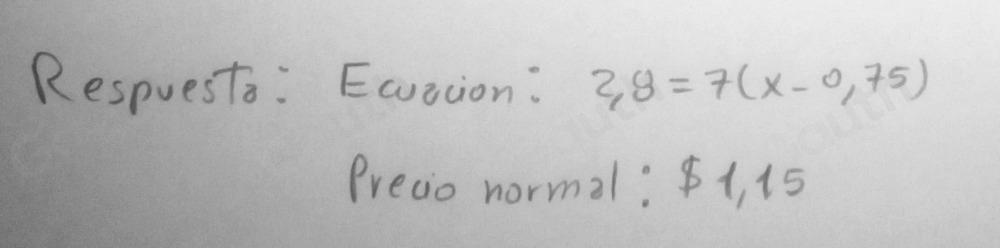 Respuesta: Ecuacion: 2,8 = 7(x - 0,75)
Precio normal: $ 1,15